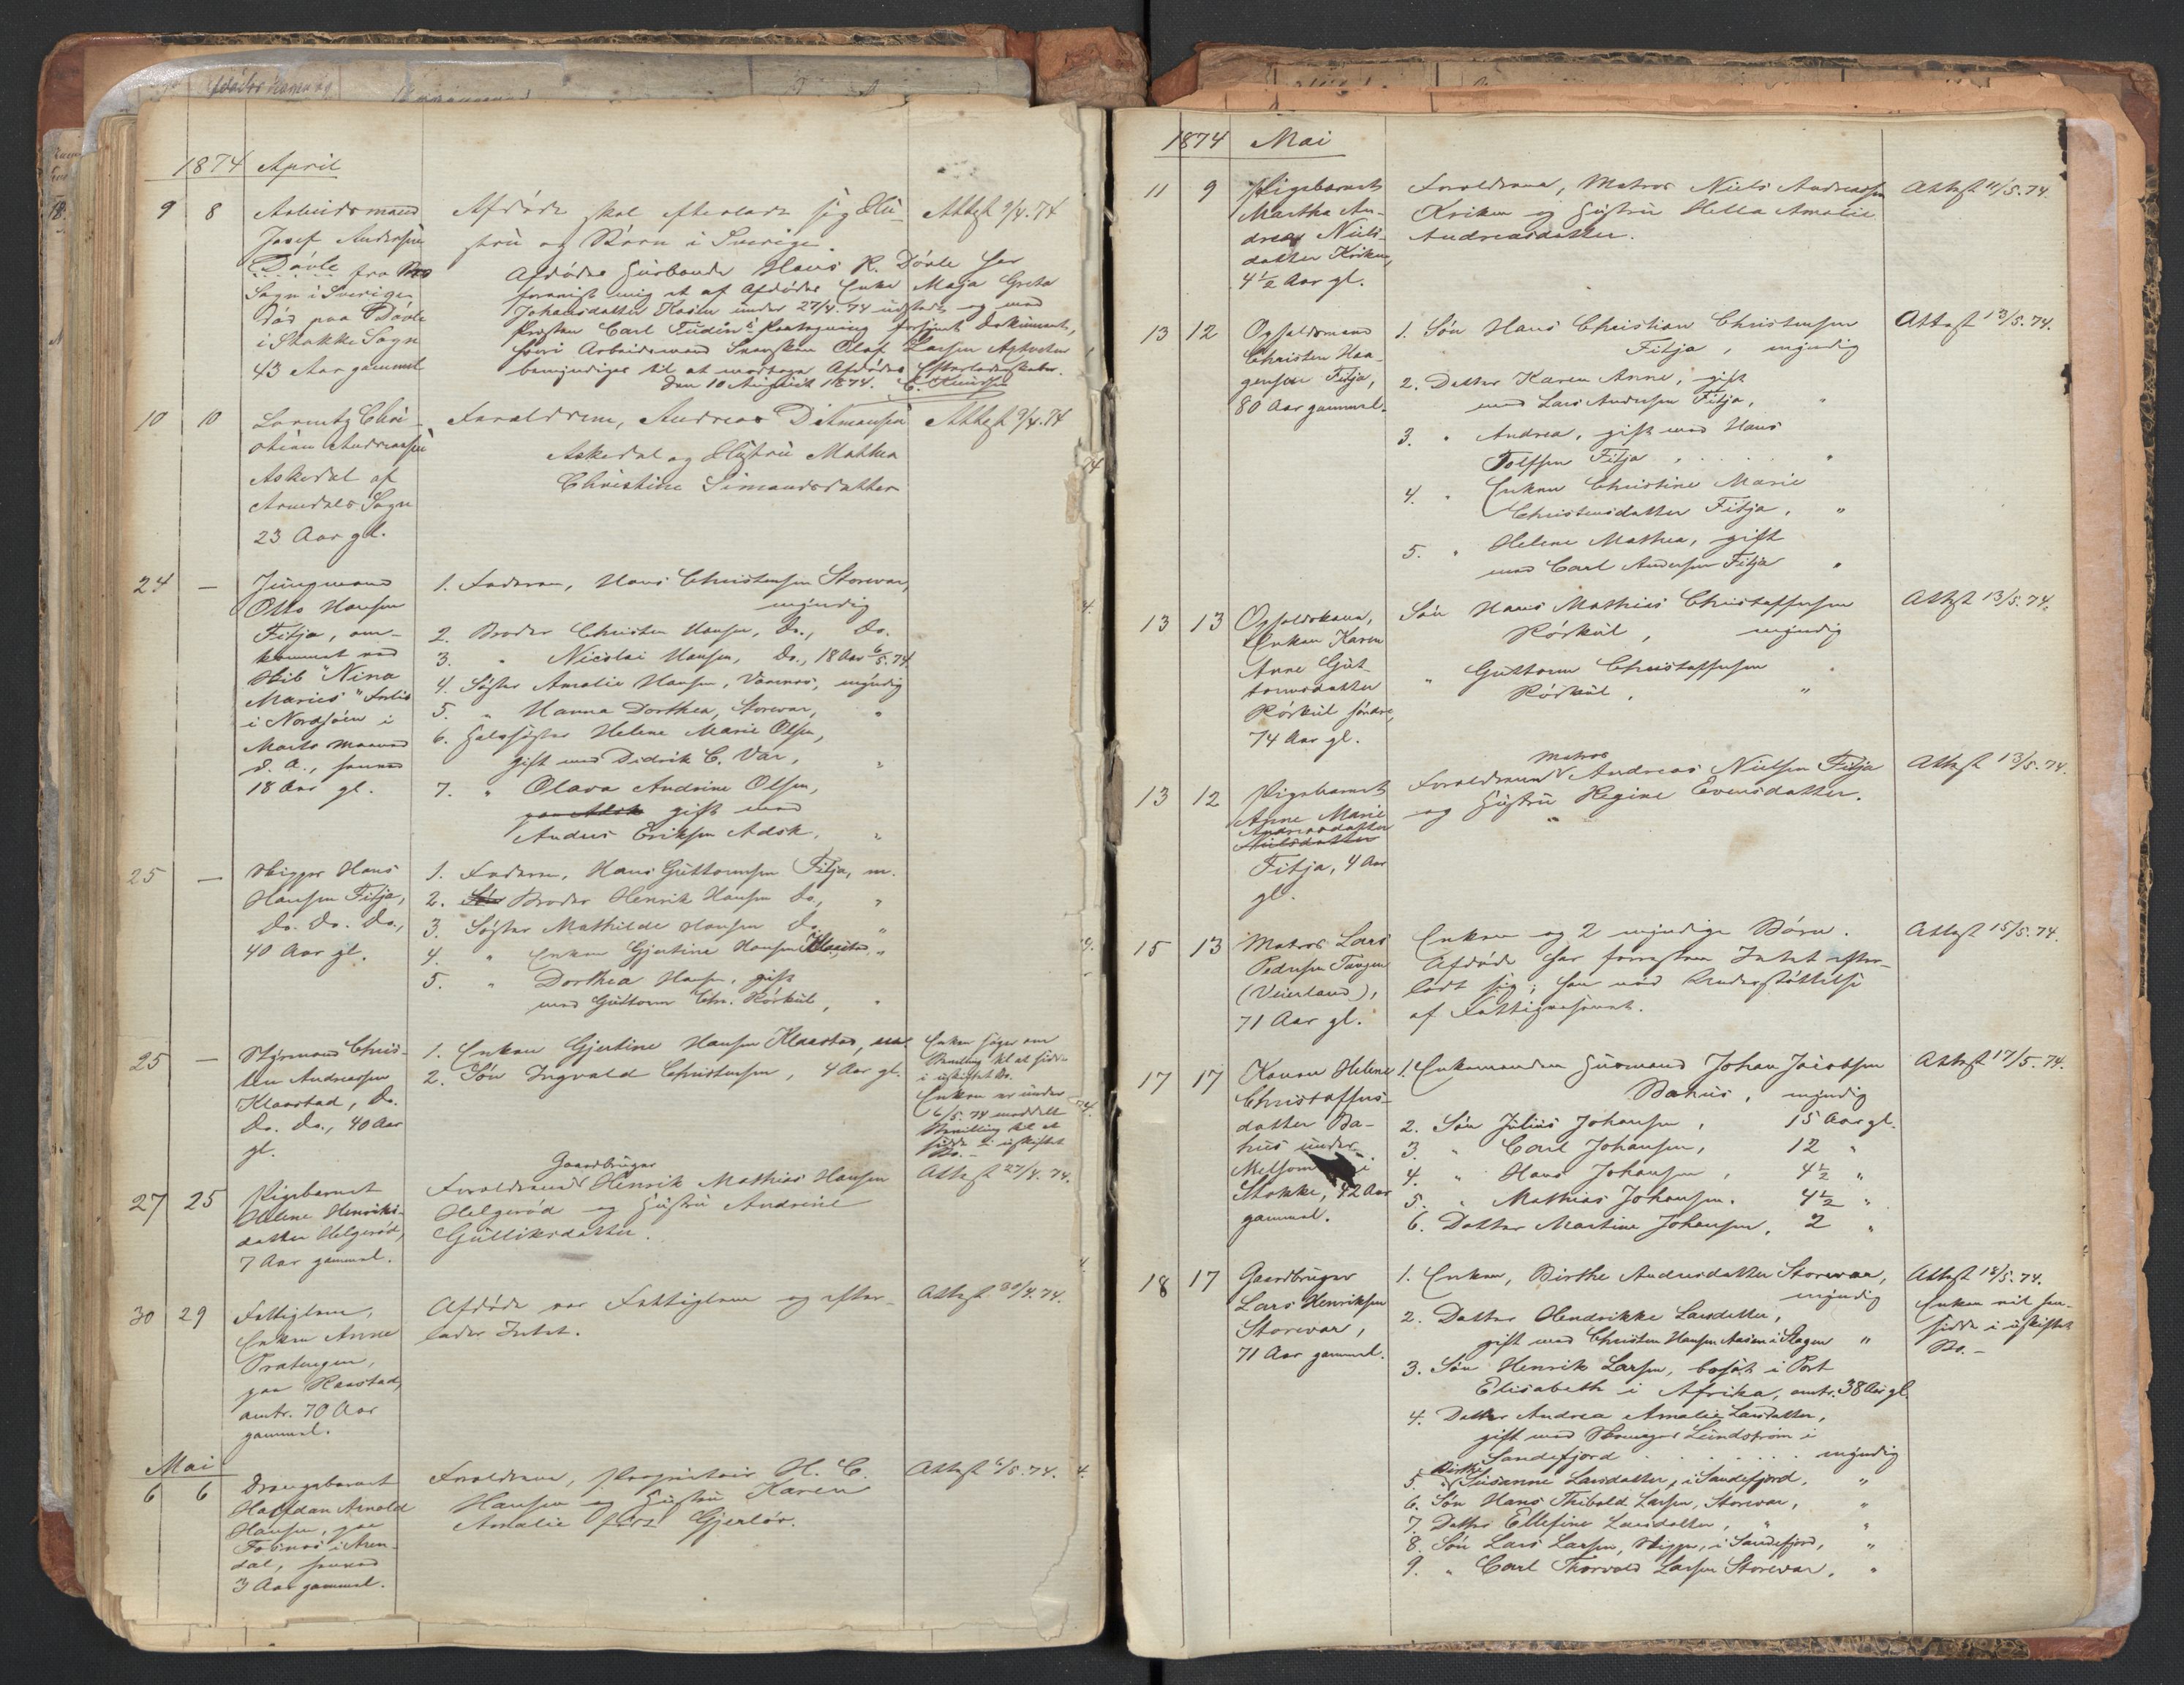 1874 April
9 8 Arbeidsmand
Josef Andersen
Dövle fra
Sogn i Sverige
död paa Dövle
i Stokke Sogn
43 Aar gammel
Afdöde skal efterlade sig Hu-
stru og Börn i Sverige.
Afdödes Husbonde Hans R. Dövle har
forevist mig et af Afdödes Enke Maja Greta
Johansdatter under 27/4. 74 udstedt og med
Presten Carl Paategning forsynet Dokument,
hvori Arbeidsmand Svensken Olof Larsen
bemyndiges til at modtage Afdödes Efterladenskaber.
den 10 August 1874.
Attest 9/4. 74
10 10 Lorentz Chri-
stian Andreassen
Askedal af
Arendals Sogn
23 Aar gl.
Foreldrene, Andreas Ditmansen
Askedal og Hustru Mathea
Christine Simonsdatter
Attest 9/4. 74
24 — Jungmand
Otto Hansen
Fitja, om-
kommet med
Skib "Nina
Maries" Forlis
i Nordsöen i
Marts Maaned
d. A., henved
18 Aar gl.
1. Faderen, Hans Christensen Storevar,
myndig
2. Broder Christen Hansen, do., do.
3. " Nicolai Hansen, do., 18 Aar 6/5. 74.
4. Söster Amalie Hansen, Vaarnes, myndig
5. " Hanna Dorthea, Storevar, "
6. Halvsöster Helene Marie Olsen,
gift med Didrik C. Var, "
7. " Olava Andrine Olsen,
paa Adsk gift med
Anders Eriksen Adsk. "
25 — Skipper Hans
Hansen Fitja,
do. do. do.,
40 Aar gl.
1. Faderen, Hans Guttormsen Fitja, m.
2. Broder Henrik Hansen do., "
3. Söster Mathilde Hansen do. "
4. " Enken Gjertine Hansen Klaastad, "
5. " Dorthea Hansen, gift
med Guttorm Chr. Rörkul, "
25 — Styrmand Chris-
ten Andreassen
Klaastad, do.
do. do., 40 Aar
gl.
1. Enken Gjertine Hansen Klaastad,
2. Sön Ingvald Christensen, 4 Aar gl.
Enken söger om
Bevilling til at sidde
i uskiftet Bo.
Enken er under
6/5. 74 meddelt
Bevilling til at
sidde i uskiftet
Bo. -
27 25 Pigebarnet
Helene Henriks-
datter Helgeröd,
7 Aar gammel.
Gaardbruger
Foreldrene Henrik Mathias Hansen
Helgeröd og Hustru Andrine
Gulliksdatter.
Attest 27/4. 74.
30 29 Fattiglem,
Enken Anne
paa Raastad,
omtr. 70 Aar
gammel.
Afdöde var Fattiglem og efter-
lader Intet.
Attest 30/4. 74.
Mai
6 6 Drengebarnet
Halfdan Arnold
Hansen, paa
Fosnes i Aren-
dal, henved
3 Aar gammel.
Foreldrene, Proprietair H. C.
Hansen og Hustru Karen
Amalie födt Gjerlöv.
Attest 6/5. 74.
1874 Mai
11 9 Pigebarnet
Martha An-
drea Niels-
datter Kriken,
4 1/2 Aar gl.
Foreldrene, Matros Niels Andreasen
Kriken og Hustru Hella Amalie
Andreasdatter.
Attest 11/5. 74.
13 12 Opholdsmand
Christen Haa-
gensen Fitja,
80 Aar gammel.
1. Sön Hans Christian Christensen
Fitja, myndig
2. Datter Karen Anne, gift
med Lars Andersen Fitja, "
3. " Andrea, gift med Hans
Tolfsen Fitja . . . . . "
4. " Enken Christine Marie
Christensdatter Fitja, "
5. " Helene Mathea, gift
med Carl Andersen Fitja "
Attest 13/5. 74.
13 13 Opholdskone,
Enken Karen
Anne Gut-
tormsdatter
Rörkul söndre,
74 Aar gl.
Sön Hans Mathias Christoffersen
Rörkul, myndig
" Guttorm Christoffersen
Rörkul, "
Attest 13/5. 74.
13 12 Pigebarnet
Anne Marie
Andreasdatter
Nielsdatter
Fitja, 4 Aar
gl.
Matros
Foreldrene Andreas Nielsen Fitja
og Hustru Regine Evensdatter.
Attest 13/5. 74.
15 13 Matros Lars
Pedersen Tangen
(Veierland),
71 Aar gl.
Enken og 2 myndige Börn.
Afdöde har forresten Intet efter-
ladt sig; han nöd Understöttelse
af Fattigvæsenet.
Attest 15/5. 74.
17 17 Konen Helene
Christoffers-
datter Ba-
hus under
Melsom i
Stokke, 42 Aar
gammel.
1. Enkemanden Husmand Johan Jacobsen
Bahus, myndig
2. Sön Julius Johansen, 15 Aar gl.
3. " Carl Johansen, 12 "
4. " Hans Johansen, 4 1/2 "
5. " Mathias Johansen. 4 1/2 "
6. Datter Martine Johansen, 2 "
Attest 17/5. 74.
18 17 Gaardbruger
Lars Henriksen
Storevar,
71 Aar gammel.
1. Enken, Birthe Andersdatter Storevar,
myndig
2. Datter Hendrikke Larsdatter,
gift med Christen Hansen Aasen i Slagen "
3. Sön Henrik Larsen, bosat i Port
Elisabeth i Afrika, omtr. 38 Aar gl.
4. Datter Andrea Amalie Larsdatter,
gift med Skomager Lundström i
Sandefjord . . . . . . myndig
5. " Birthe Susanne Larsdatter, i Sandefjord, "
6. Sön Hans Thibold Larsen, Storevar, "
7. Datter Ellefine Larsdatter, " "
8. Sön Lars Larsen, Skipper, i Sandefjord, "
9. " Carl Thorvald Larsen Storevar. "
Attest 18/5. 74.
Enken vil hen-
sidde i uskiftet
Bo. -